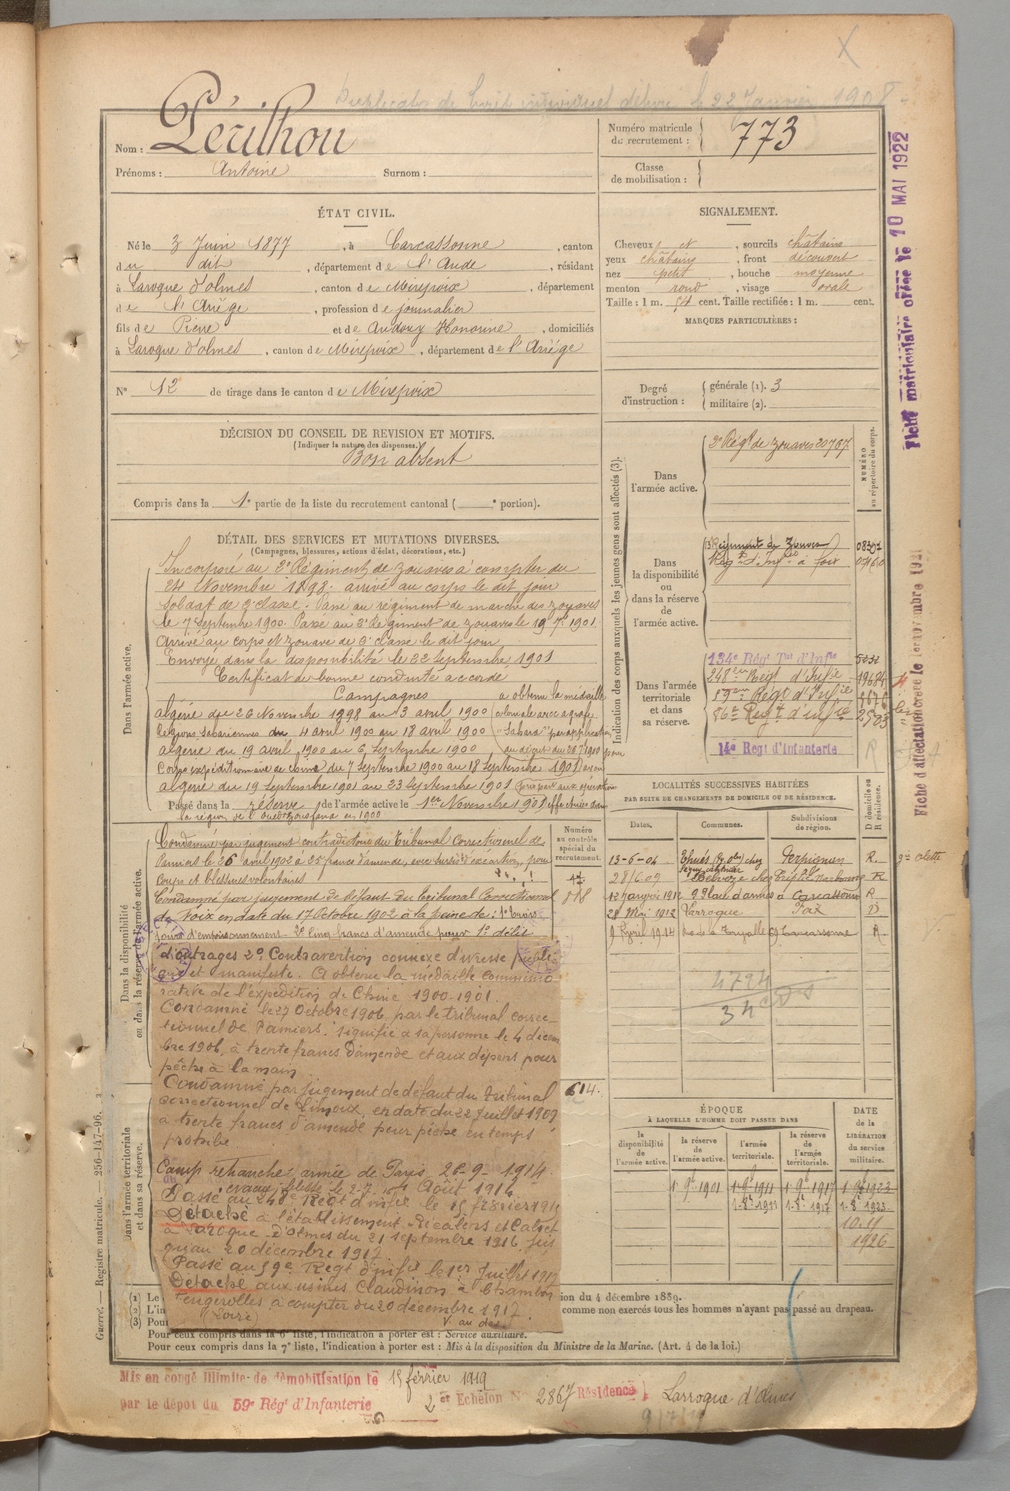 Duplicata de livret individuel délivré le 22 Janvier 1908
Nom : Périlhou
Prénoms : Antoine Surnom :
Numéro matricule du recrutement : 773
Classe de mobilisation :
ÉTAT CIVIL.
Né le 3 Juin 1877, à Carcassonne, canton
du dit, département de l'Aude, résidant
à Laroque d'olmes, canton de Mirepoix, département
de l'Ariège, profession de journalier
fils de Pierre et de Andouy Honorine, domiciliés
à Laroque d'olmes, canton de Mirepoix, département de l'Ariége
N° 12 de tirage dans le canton de Mirepoix
SIGNALEMENT.
Cheveux et, sourcils châtains
yeux châtains, front découvert
nez petit, bouche moyenne
menton rond, visage ovale
Taille : 1 m. 54 cent. Taille rectifiée : 1 m. cent.
MARQUES PARTICULIÈRES :
Degré d'instruction : générale (1). 3
militaire (2).
DÉCISION DU CONSEIL DE REVISION ET MOTIFS.
(Indiquer la nature des dispenses.)
Bon absent
Compris dans la 1e partie de la liste du recrutement cantonal ( e portion).
DÉTAIL DES SERVICES ET MUTATIONS DIVERSES.
(Campagnes, blessures, actions d'éclat, décorations, etc.)
Dans l'armée active.
Incorporé au 2e Régiment de zouaves à compter du
24 Novembre 1898. arrivé au corps le dit jour
soldat de 2e classe. Passé au régiment de marche des zouaves
le 7 Septembre 1900. Passé au 2e Régiment de zouaves le 1901
Arrivé au corps et zouave de 2e classe le dit jour
Envoyé dans la disponibilité le 22 Septembre 1901
Certificat de bonne conduite accordé
Campagnes
algérie du 26 Novembre 1898 au 3 avril 1900
Régions Sahariennes du 4 avril 1900 au 18 avril 1900
algérie du 19 avril 1900 au 6 septembre 1900
Corps expéditionnaire de Chine du 7 Septembre 1900 au 18 Septembre 1901
algérie du 19 septembre 1901 au 23 Septembre 1901
a obtenu la médaille
coloniale avec agrafe
"Sahara" par application
du décret du 26 7 1910 pour
avoir
pris part aux opérations
effectuées dans
la région de l' en 1900
Passé dans la réserve de l'armée active le 1er Novembre 1901
Indication des corps auxquels les jeunes gens sont affectés (3).
Dans l'armée active.
2e Régt de zouaves 20787
NUMÉRO au répertoire du corps.
Dans la disponibilité ou dans la réserve de l'armée active.
Régiment de Zouaves
Régt d'Infie à foix
Dans l'armée territoriale et dans sa réserve.
134e Régt Tal d'Infie
248eme Regt d'Infie
59eme Regt d'Infie
86e Regt d'infie
14e Regt d'Infanterie
Dans la disponibilité ou dans la réserve de l'armée active.
Numéro au contrôle spécial du recrutement.
Condamné par jugement contradictoire du Tribunal Correctionnel de
Pamiers le 26 avril 1902 à 25 francs d'amende, avec sursis d'exécution, pour
coups et blessures volontaires
Condamné par jugement de défaut du Tribunal Correctionnel
de Foix en date du 17 Octobre 1902 à la peine de : 1° trois
jours d'emprisonnement 2° Cinq francs d'amende pour 1° délit
d'outrages 2° Contravention connexe d'ivresse publi
que et manifeste. A obtenu la médaille commémo
rative de l'expédition de Chine 1900-1901.
Condamné le 27 Octobre 1906, par le tribunal correc
tionnel de Pamiers. signifié à sa personne le 4 décem
bre 1906, à trente francs d'amende et aux dépens pour
pêche à la main
Condamné par jugement de défaut du tribunal
correctionnel de Limoux, en date du 22 Juillet 1909
à trente francs d'amende pour pêche en temps
prohibé
614.
Dans l'armée territoriale et dans sa réserve.
Camp retranché, armée de Paris, 20-9-1914
Passé au 248e Regt d'infie le 15 février 1916
Détaché à l'établissement Ricalens et Cabrol
à Laroque d'olmes du 21 septembre 1916 jus
qu'au 20 décembre 1917.
Passé au 59e Regt d'infie le 1er Juillet 1917
Détaché aux usines Claudinon à Chambon
Feugerolles à compter du 20 décembre 1917.
Loire V. au dos
LOCALITÉS SUCCESSIVES HABITÉES
PAR SUITE DE CHANGEMENTS DE DOMICILE OU DE RÉSIDENCE.
Dates. Communes. Subdivisions de région. D domicile ou R résidence.
13-6-04 Thués chez Perpignan R.
28/6 09 chez Narbonne R
12 janvier 1912 2 Place d'armes à Carcassonne R
28 Mai 1912 Laroque Foix D
9 Avril 1914 Carcassonne R.
4794
34
ÉPOQUE
À LAQUELLE L'HOMME DOIT PASSER DANS
la disponibilité de l'armée active. la réserve de l'armée active. l'armée territoriale. la réserve de l'armée territoriale.
DATE de la LIBÉRATION du service militaire.
1-9bre 1901 1-9bre 1911 1-9bre 1917 1-9bre 1923
1-8bre 1911 1-8bre 1917 1-8bre 1923
10.11
1926
(1) Le
(2) L'in
(3) Pour
ion du 4 décembre 1889.
comme non exercés tous les hommes n'ayant pas passé au drapeau.
Pour ceux compris dans la 6e liste, l'indication à porter est : Service auxiliaire.
Pour ceux compris dans la 7e liste, l'indication à porter est : Mis à la disposition du Ministre de la Marine. (Art. 4 de la loi.)
Mis en congé illimité de démobilisation le 15 février 1919
par le dépot du 59e Régt d'Infanterie 2er Echelon N° 2867 Résidence Larroque d'Olmes
Guerre. — Registre matricule. — 256-147-96.
Fiche matriculaire créée le 10 MAI 1922
Fiche d'affectation créée le 1er novembre 1921